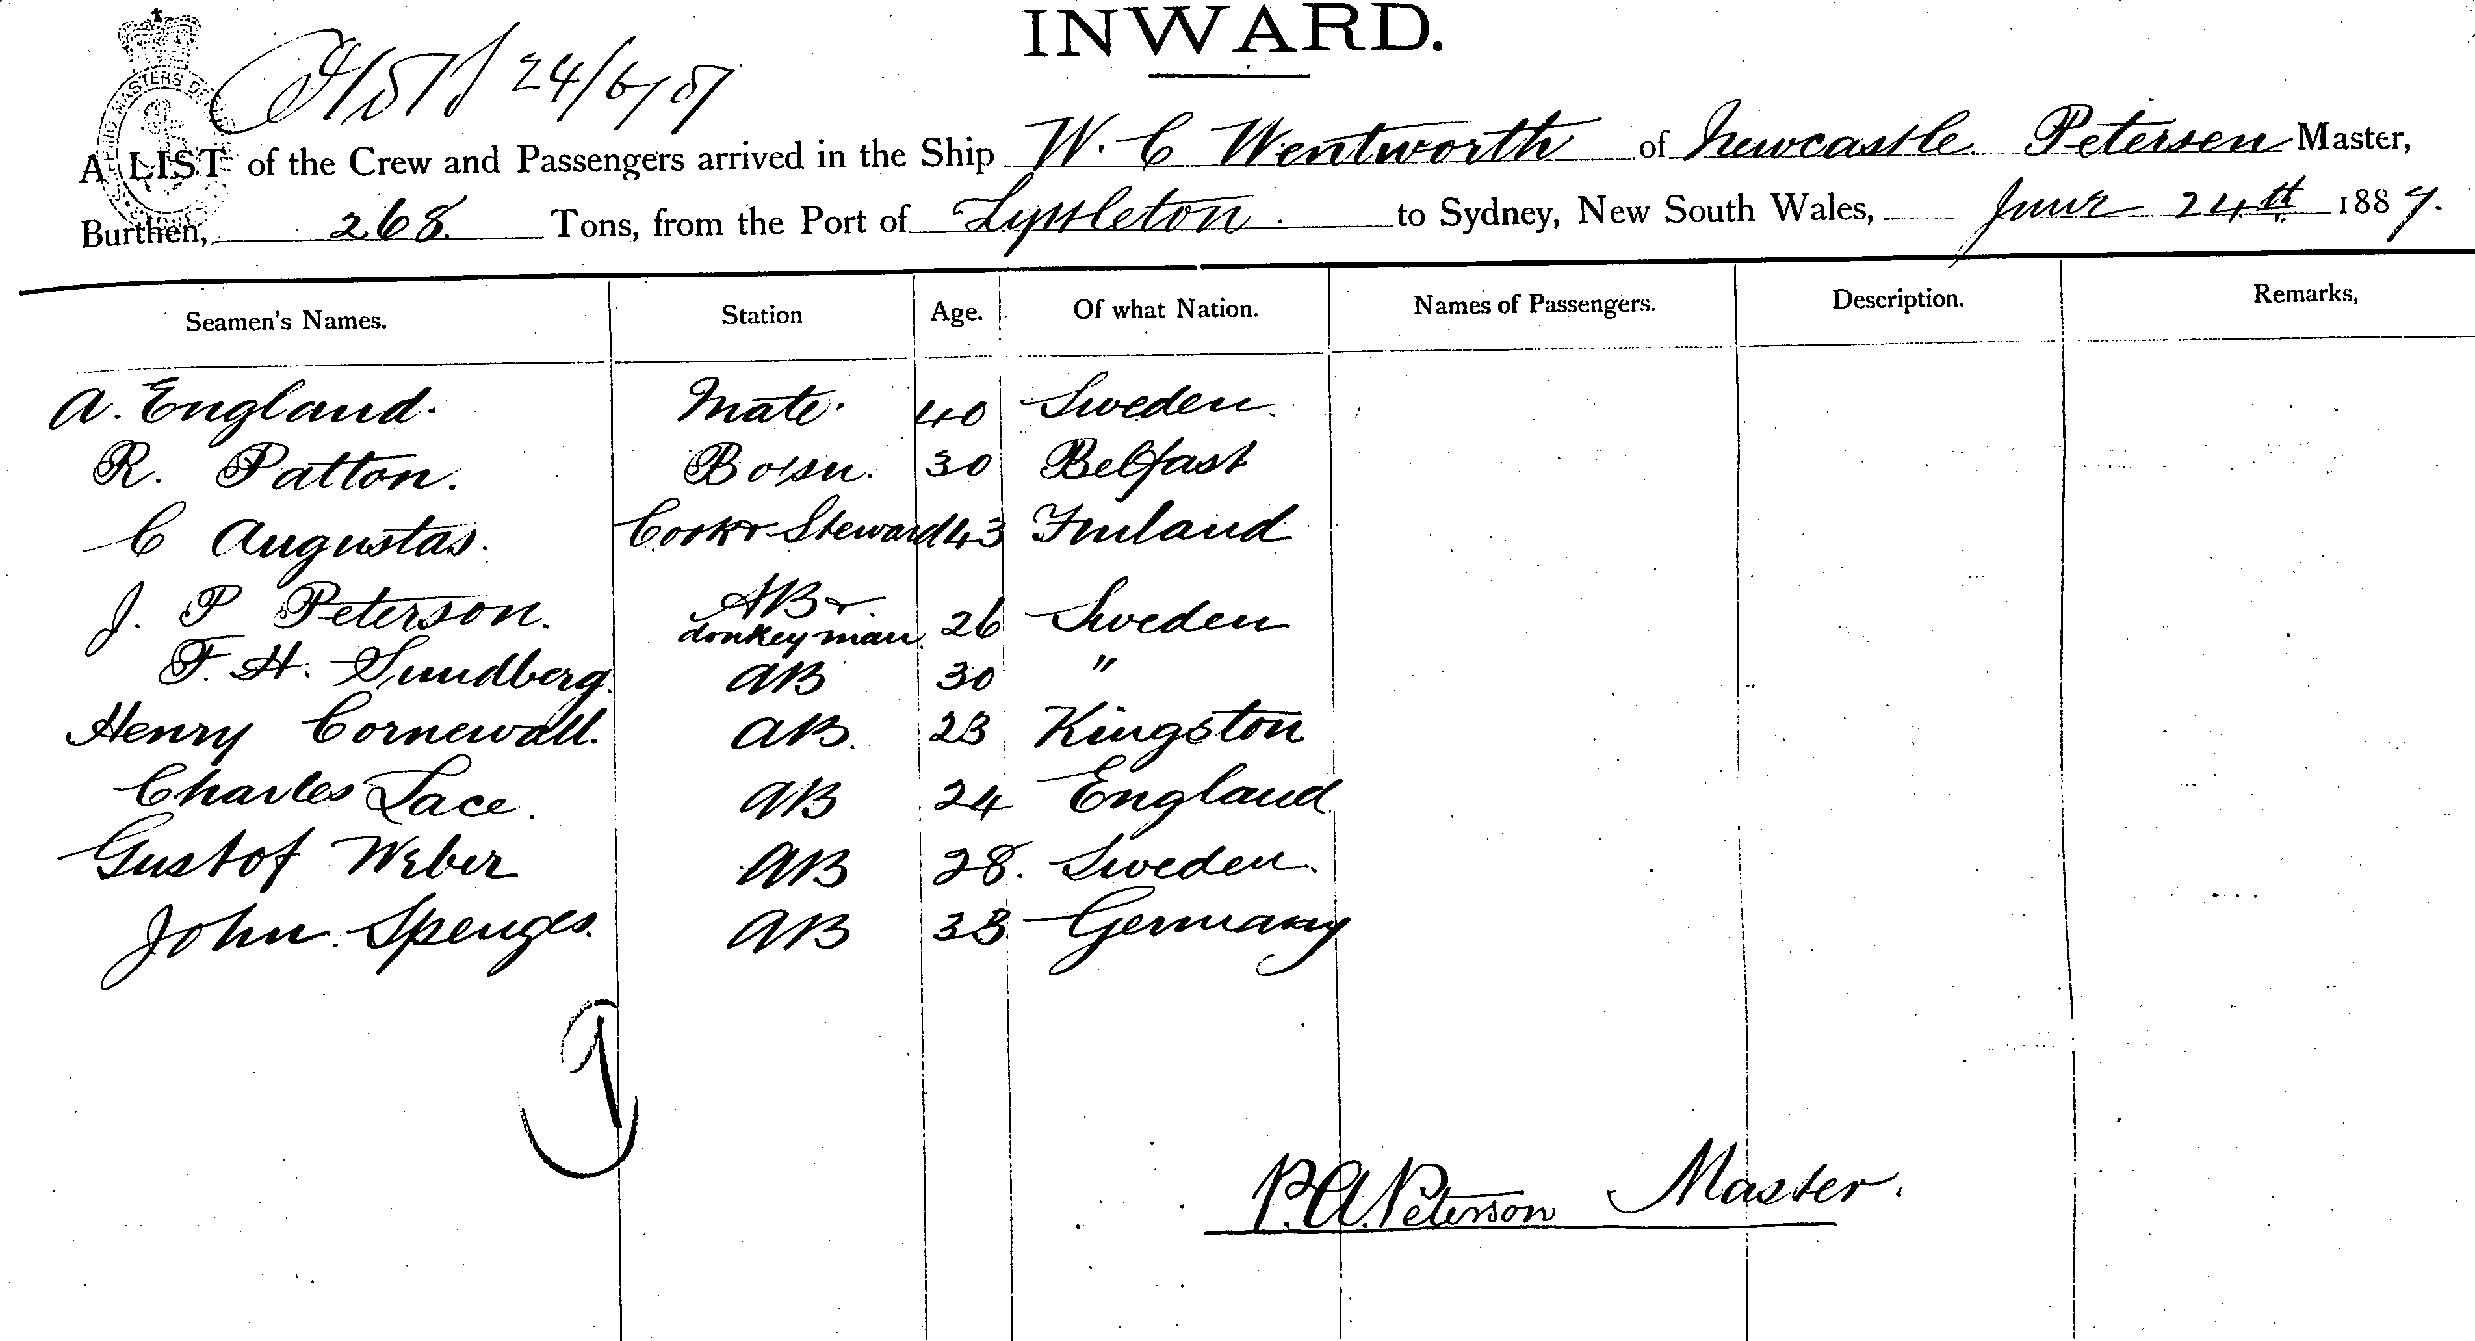 INWARD.
24/6/87
A LIST of the Crew and Passengers arrived in the Ship W. C Wentworth of Newcastle Petersen Master,
Burthen, 268 Tons, from the Port of Lyttleton. to Sydney, New South Wales, June 24th 1887.
Seamen's Names. Station Age. Of what Nation. Names of Passengers. Description. Remarks,
A. England. Mate. 40 Sweden.
R. Patton. Bosn. 30 Belfast
C Augustas. Cook & Steward 43 Finland
J. P Peterson. AB & donkeyman. 26 Sweden
F. H. Sundberg. AB 30 "
Henry Cornewall. AB. 23 Kingston
Charles Lace. AB 24 England
Gustof Weber AB 28. Sweden.
John Spenges. AB 33 Germany
9
P. A. Peterson Master.